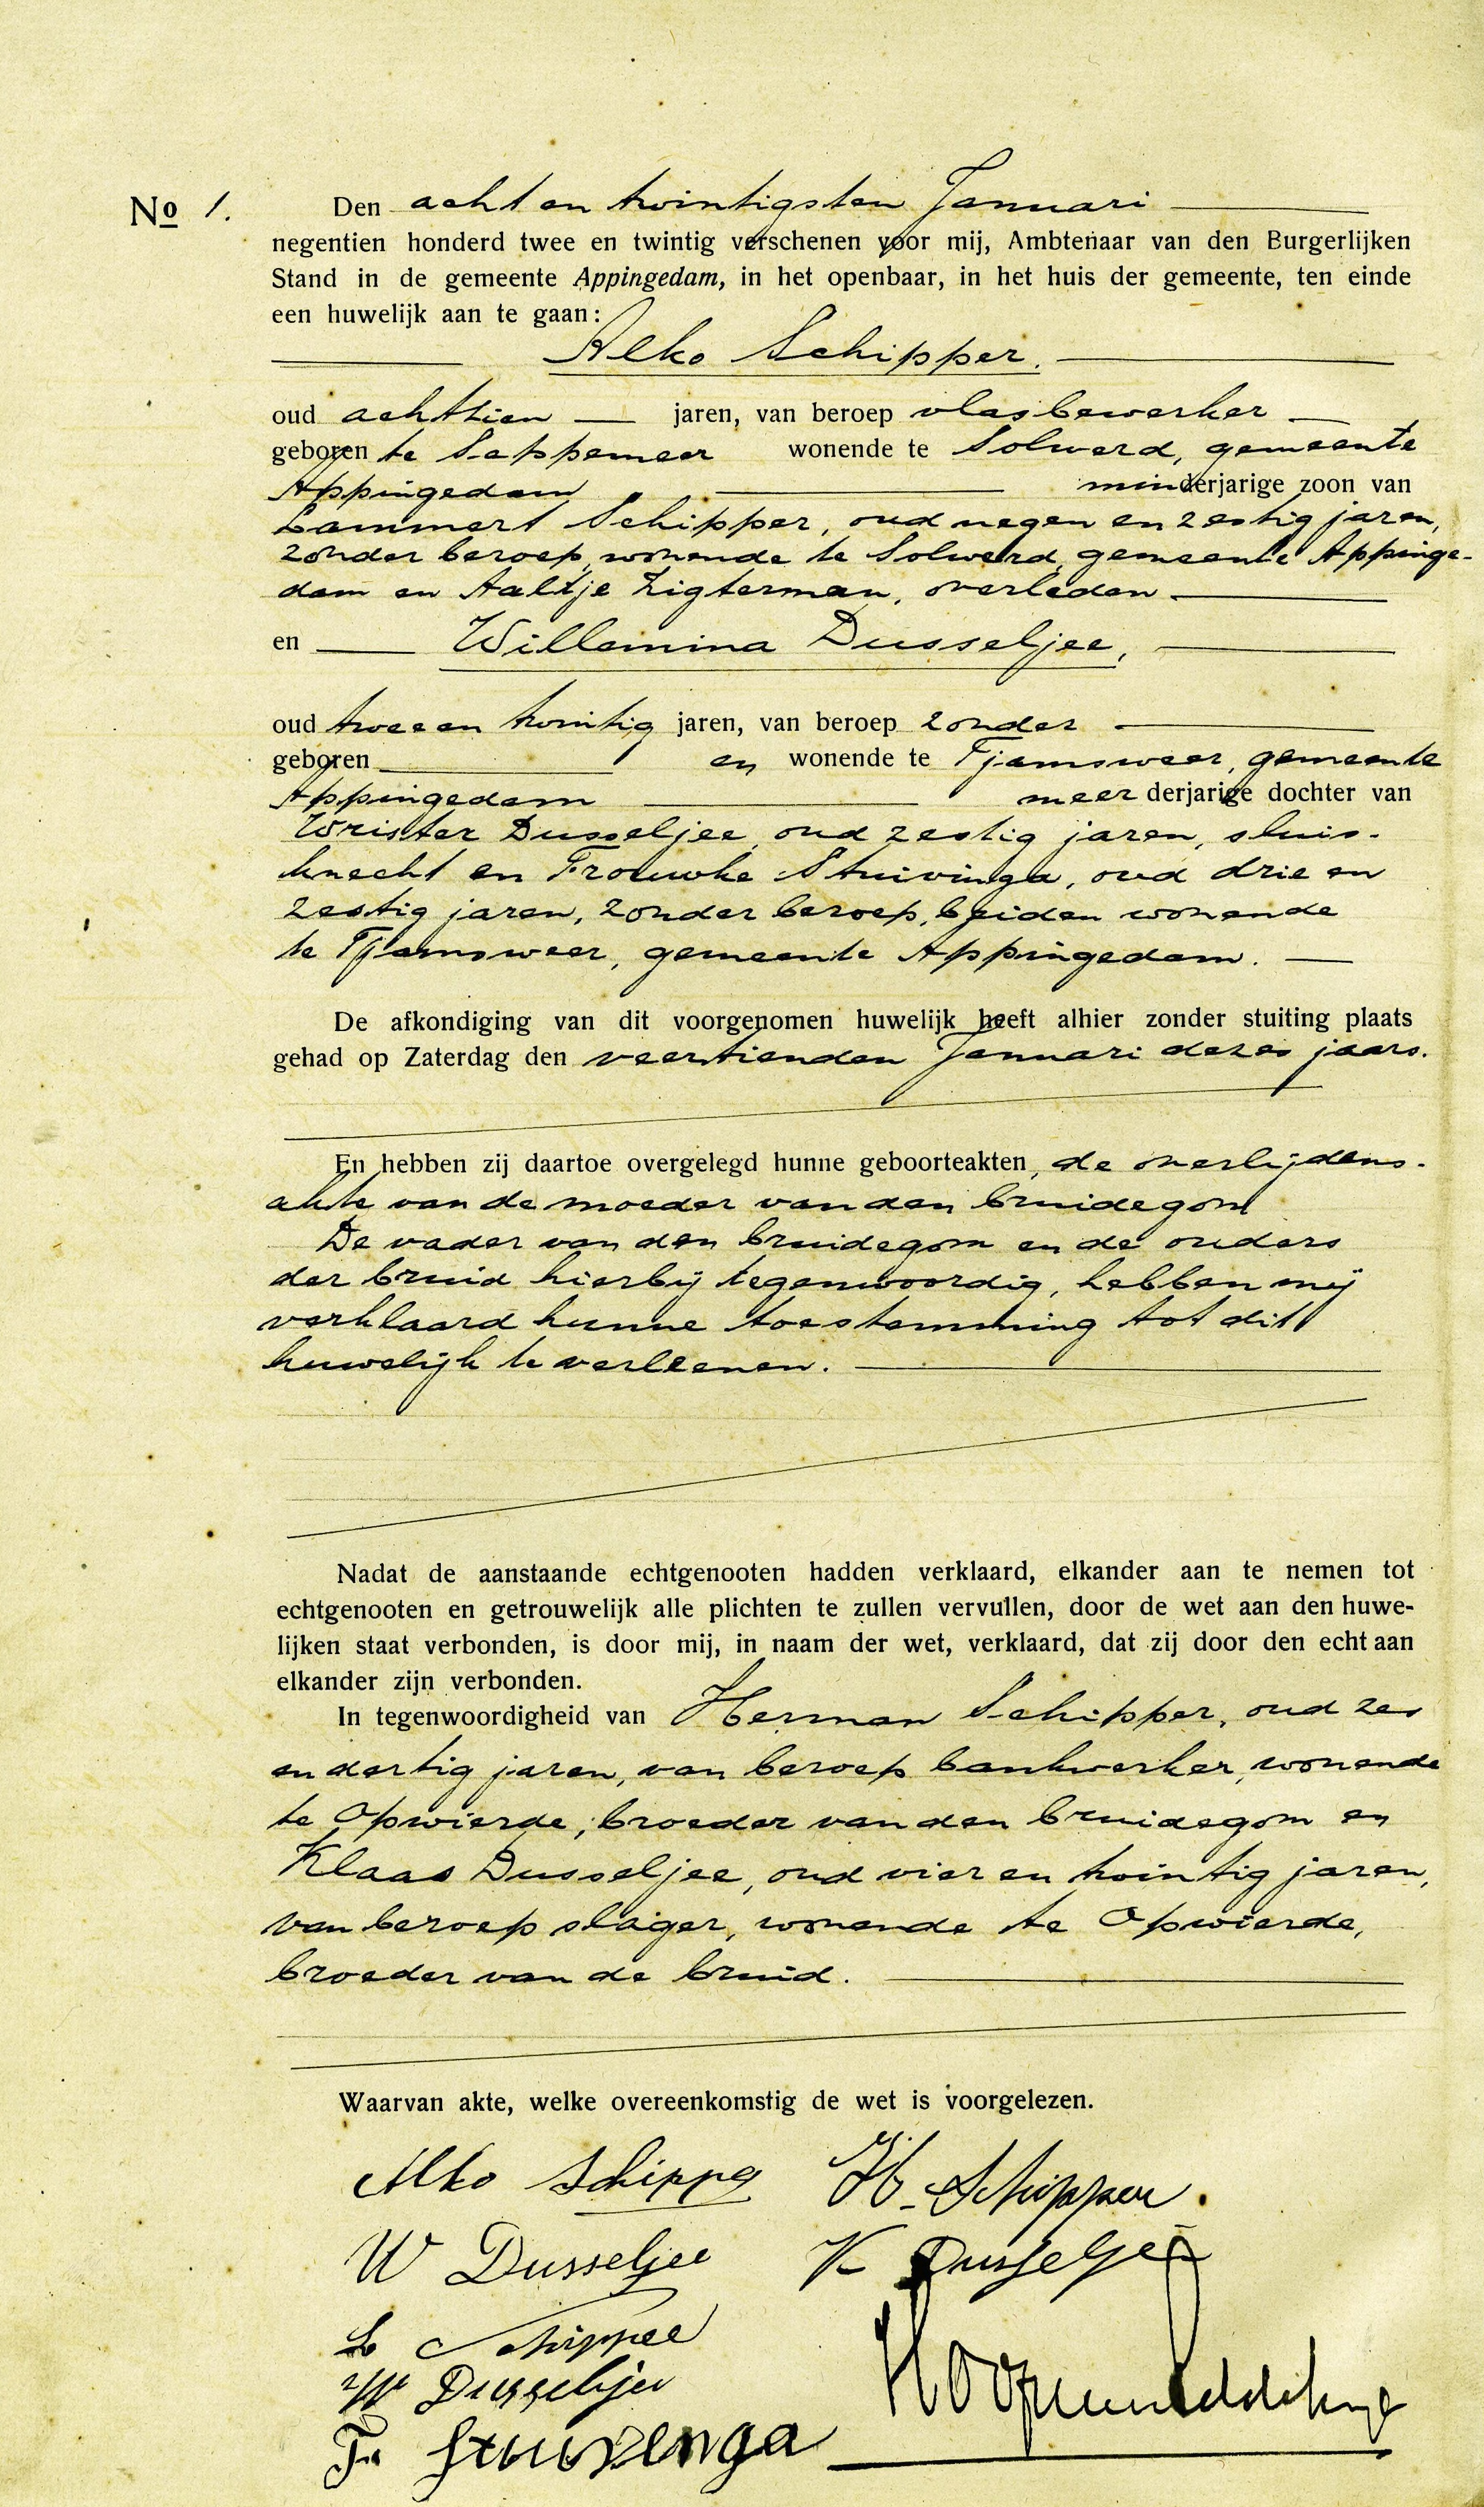 No 1. Den acht en twintigsten Januari
negentien honderd twee en twintig verschenen voor mij, Ambtenaar van den Burgerlijken
Stand in de gemeente Appingedam, in het openbaar, in het huis der gemeente, ten einde
een huwelijk aan te gaan:
Alko Schipper.
oud achttien jaren, van beroep vlasbewerker
geboren te Sappemeer wonende te Solwerd, gemeente
Appingedam minderjarige zoon van
Lammert Schipper, oud negen en zestig jaren,
zonder beroep, wonende te Solwerd, gemeente Appinge-
dam en Aaltje Zigterman, overleden
en Willemina Dusseljee,
oud twee en twintig jaren, van beroep zonder
geboren en wonende te Tjamsweer, gemeente
Appingedam meerderjarige dochter van
Wrister Dusseljee, oud zestig jaren, sluis-
knecht en Frouwke Stuivinga, oud drie en
zestig jaren, zonder beroep, beiden wonende
te Tjamsweer, gemeente Appingedam.
De afkondiging van dit voorgenomen huwelijk heeft alhier zonder stuiting plaats
gehad op Zaterdag den veertienden Januari dezes jaars.
En hebben zij daartoe overgelegd hunne geboorteakten, de overlijdens-
akte van de moeder van den bruidegom
De vader van den bruidegom en de ouders
der bruid hierbij tegenwoordig, hebben mij
verklaard hunne toestemming tot dit
huwelijk te verleenen.
Nadat de aanstaande echtgenooten hadden verklaard, elkander aan te nemen tot
echtgenooten en getrouwelijk alle plichten te zullen vervullen, door de wet aan den huwe-
lijken staat verbonden, is door mij, in naam der wet, verklaard, dat zij door den echt aan
elkander zijn verbonden.
In tegenwoordigheid van Herman Schipper, oud zes
en dertig jaren, van beroep bankwerker, wonende
te Opwierde, broeder van den bruidegom en
Klaas Dusseljee, oud vier en twintig jaren,
van beroep slager, wonende te Opwierde,
broeder van de bruid.
Waarvan akte, welke overeenkomstig de wet is voorgelezen.
Alko Schipper H. Schipper.
W Dusseljee K Dusseljee
L Schipper
W Dusseljee
F. Stuivenga